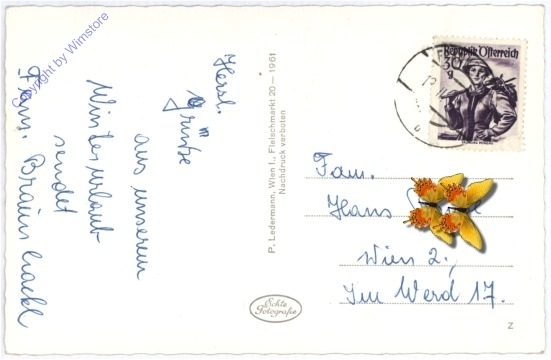 Copyright by Wimstore
Herzl.
Grüße
aus unserem
Winterurlaub
sendet
Fam.
P. Ledermann, Wien I., Fleischmarkt 20 — 1961
Nachdruck verboten
Echte
Fotografie
Republik Österreich
30
g
Fam.
Hans
Wien 2.,
Im Werd 17.
Z